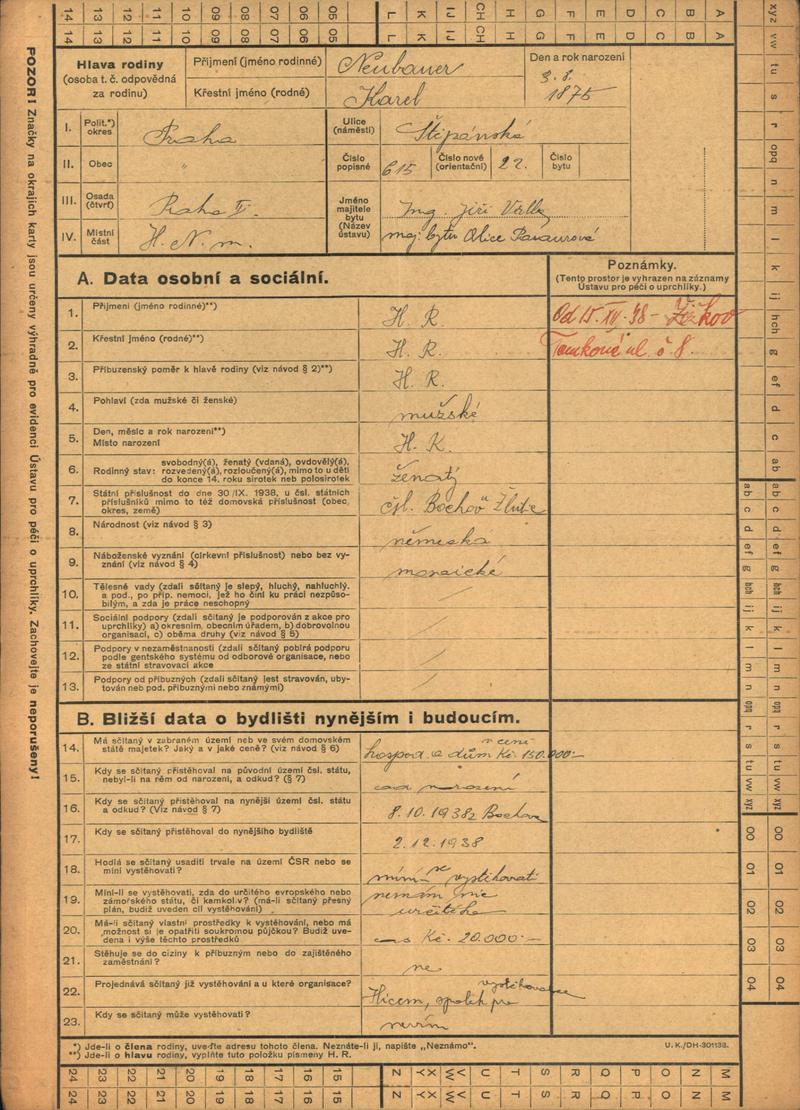 14 13 12 11 10 09 08 07 06 05 L K IJ CH H G F E D C B A
14 13 12 11 10 09 08 07 06 05 L K IJ CH H G F E D C B A
POZOR! Značky na okrajích karty jsou určeny výhradně pro evidenci Ústavu pro péči o uprchlíky. Zachovejte je neporušeny!
Hlava rodiny
(osoba t. č. odpovědná
za rodinu)
Příjmení (jméno rodinné) Neubauer
Křestní jméno (rodné) Karel
Den a rok narození
3. 8.
1875
I. Polit.*) okres Praha
Ulice (náměstí) Štěpánská
II. Obec "
Číslo popisné 615 Číslo nové (orientační) 22. Číslo bytu
III. Osada (čtvrť) Praha II.
Jméno majitele bytu (Název ústavu) Ing. Jiří
IV. Místní část H. N. m.
maj. bytu Alice
A. Data osobní a sociální.
Poznámky.
(Tento prostor je vyhrazen na záznamy
Ústavu pro péči o uprchlíky.)
1. Příjmení (jméno rodinné)**) H. R.
Od 15. XII. 38 - Žižkov
2. Křestní jméno (rodné)**) H. R.
Tomkova ul. č 8.
3. Příbuzenský poměr k hlavě rodiny (viz návod § 2)**) H. R.
4. Pohlaví (zda mužské či ženské) mužské
5. Den, měsíc a rok narození**)
Místo narození H. R.
6. Rodinný stav: svobodný(á), ženatý (vdaná), ovdovělý(á),
rozvedený(á), rozloučený(á), mimo to u dětí
do konce 14. roku sirotek neb polosirotek ženatý
7. Státní příslušnost do dne 30/IX. 1938, u čsl. státních
příslušníků mimo to též domovská příslušnost (obec,
okres, země) čsl. Bochov Žlutice
8. Národnost (viz návod § 3) německá
9. Náboženské vyznání (církevní příslušnost) nebo bez vy-
znání (viz návod § 4) mosaické
10. Tělesné vady (zdali sčítaný je slepý, hluchý, nahluchlý
a pod., po příp. nemoci, jež ho činí ku práci nezpůso-
bilým, a zda je práce neschopný /
11. Sociální podpory (zdali sčítaný je podporován z akce pro
uprchlíky) a) okresním, obecním úřadem, b) dobrovolnou
organisací, c) oběma druhy (viz návod § 5) /
12. Podpory v nezaměstnanosti (zdali sčítaný pobírá podporu
podle gentského systému od odborové organisace, nebo
ze státní stravovací akce /
13. Podpory od příbuzných (zdali sčítaný jest stravován, uby-
tován neb pod. příbuznými nebo známými) /
B. Bližší data o bydlišti nynějším i budoucím.
14. Má sčítaný v zabraném území neb ve svém domovském
státě majetek? Jaký a v jaké ceně? (viz návod § 6) hospod. a dům v ceni Kč 150.000:-
15. Kdy se sčítaný přistěhoval na původní území čsl. státu,
nebyl-li na něm od narození, a odkud? (§ 7) od narození
16. Kdy se sčítaný přistěhoval na nynější území čsl. státu
a odkud? (Viz návod § 7) 8. 10. 1938 z Bochova
17. Kdy se sčítaný přistěhoval do nynějšího bydliště 2. 12. 1938
18. Hodlá se sčítaný usaditi trvale na území ČSR nebo se
míní vystěhovati? míním se vystěhovati
19. Míní-li se vystěhovati, zda do určitého evropského nebo
zámořského státu, či kamkoliv? (má-li sčítaný přesný
plán, budiž uveden cíl vystěhování) nemám nic
určitého
20. Má-li sčítaný vlastní prostředky k vystěhování, nebo má
možnost si je opatřiti soukromou půjčkou? Budiž uve-
dena i výše těchto prostředků Kč. 20.000:-
21. Stěhuje se do ciziny k příbuzným nebo do zajištěného
zaměstnání? ne
22. Projednává sčítaný již vystěhování a u které organisace? Hicem, spolek pro vystěhovalce
23. Kdy se sčítaný může vystěhovati? nevím
*) Jde-li o člena rodiny, uveďte adresu tohoto člena. Neznáte-li ji, napište „Neznámo“.
**) Jde-li o hlavu rodiny, vyplňte tuto položku písmeny H. R.
U. K./DH-301138.
24 23 22 21 20 19 18 17 16 15 Z XY VW U T S R Q P O N M
24 23 22 21 20 19 18 17 16 15 Z XY VW U T S R Q P O N M
xyz vw tu s r opq n m l k ij hch g ef d c ab
ab c d ef g hch ij k l m n opq r s tu vw xyz
ab c d ef g hch ij k l m n opq r s tu vw xyz
00 01 02 03 04
00 01 02 03 04